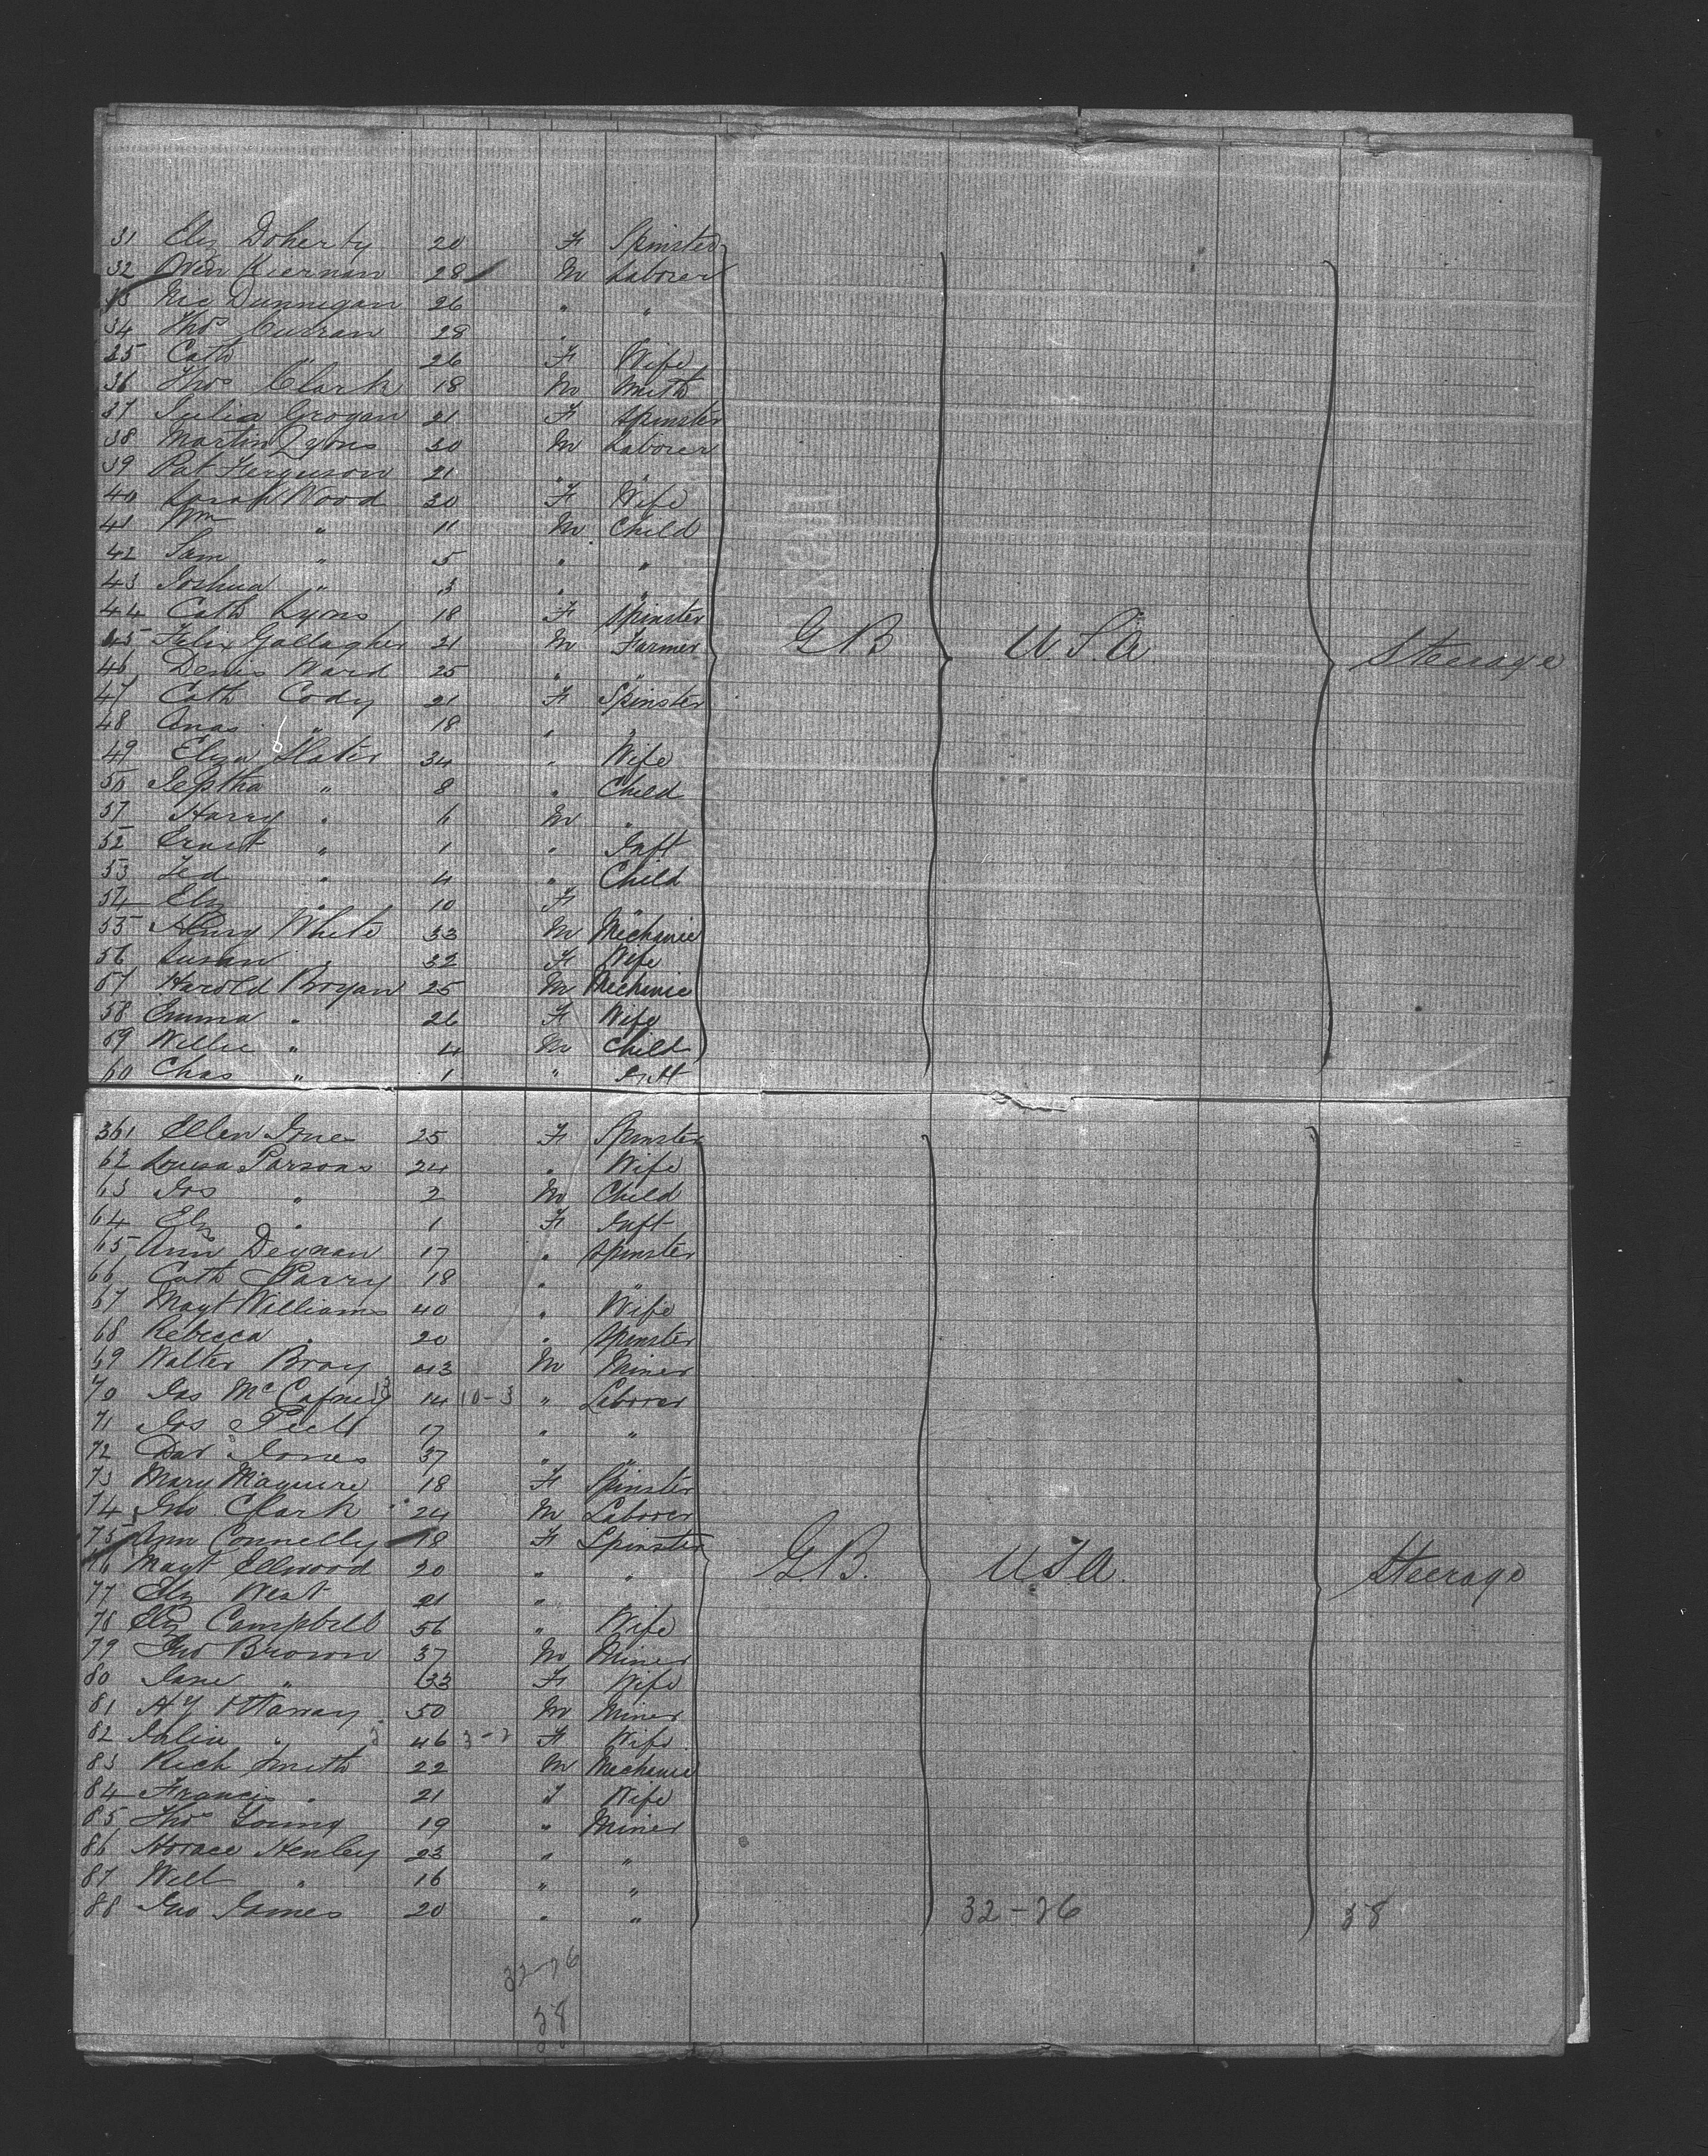 31 Eliz Doherty 20 F Spinster
32 Owen Kiernan 28 M Laborer
33 Mic Dunnigan 26 " "
34 Thos Curran 28 "
35 Cath " 26 F Wife
36 Thos Clark 18 M Smith
37 Julia Grogan 21 F Spinster
38 Martin Lyons 30 M Laborer
39 Pat Ferguson 21 " "
40 Sarah Wood 30 F Wife
41 Wm " 11 M Child
42 Sam " 5 " "
43 Joshua " 3 " "
44 Cath Lyons 18 F Spinster
45 Felix Gallagher 21 M Farmer G B U.S.A. Steerage
46 Denis Ward 25 " "
47 Cath Cody 21 F Spinster
48 Anas " 18 " "
49 Eliza Slater 34 " Wife
50 Jeptha " 8 " Child
51 Harry " 6 M "
52 Ernest " 1 " Inft
53 Ted " 4 " Child
54 Eliz " 10 F "
55 Henry White 33 M Mechanic
56 Susan " 32 F Wife
57 Harold Bryan 25 M Mechanic
58 Emma " 26 F Wife
59 Willie " 4 M Child
60 Chas " 1 " Inft
361 Ellen 25 F Spinster
62 Louisa Parsons 24 " Wife
63 Jos " 2 M Child
64 Eliz " 1 F Inft
65 Ann Degnan 17 " Spinster
66 Cath Parry 18 " "
67 Magt Williams 40 " Wife
68 Rebecca " 20 " Spinster
69 Walter Bray 43 M Miner
70 Jas McCafney 14 10-3 " Laborer
71 Jos Peel 17 " "
72 Dav Jones 37 " "
73 Mary Maguire 18 F Spinster
74 Jno Clark 24 M Laborer
75 Ann Connelly 18 F Spinster
76 Magt Ellwood 20 " " G.B. U.S.A. Steerage
77 Eliz West 21 " "
78 Eliz Campbell 56 " Wife
79 Jno Brown 37 M Miner
80 Jane " 33 F Wife
81 Hy Ottaway 50 M Miner
82 Julia " 46 3-2 F Wife
83 Rich Smith 22 M Mechanic
84 Francis " 21 F Wife
85 Thos Young 19 " Miner
86 Horace Henley 23 " "
87 Will " 16 " "
88 Jno James 20 " " 32-26 58
32-26
58